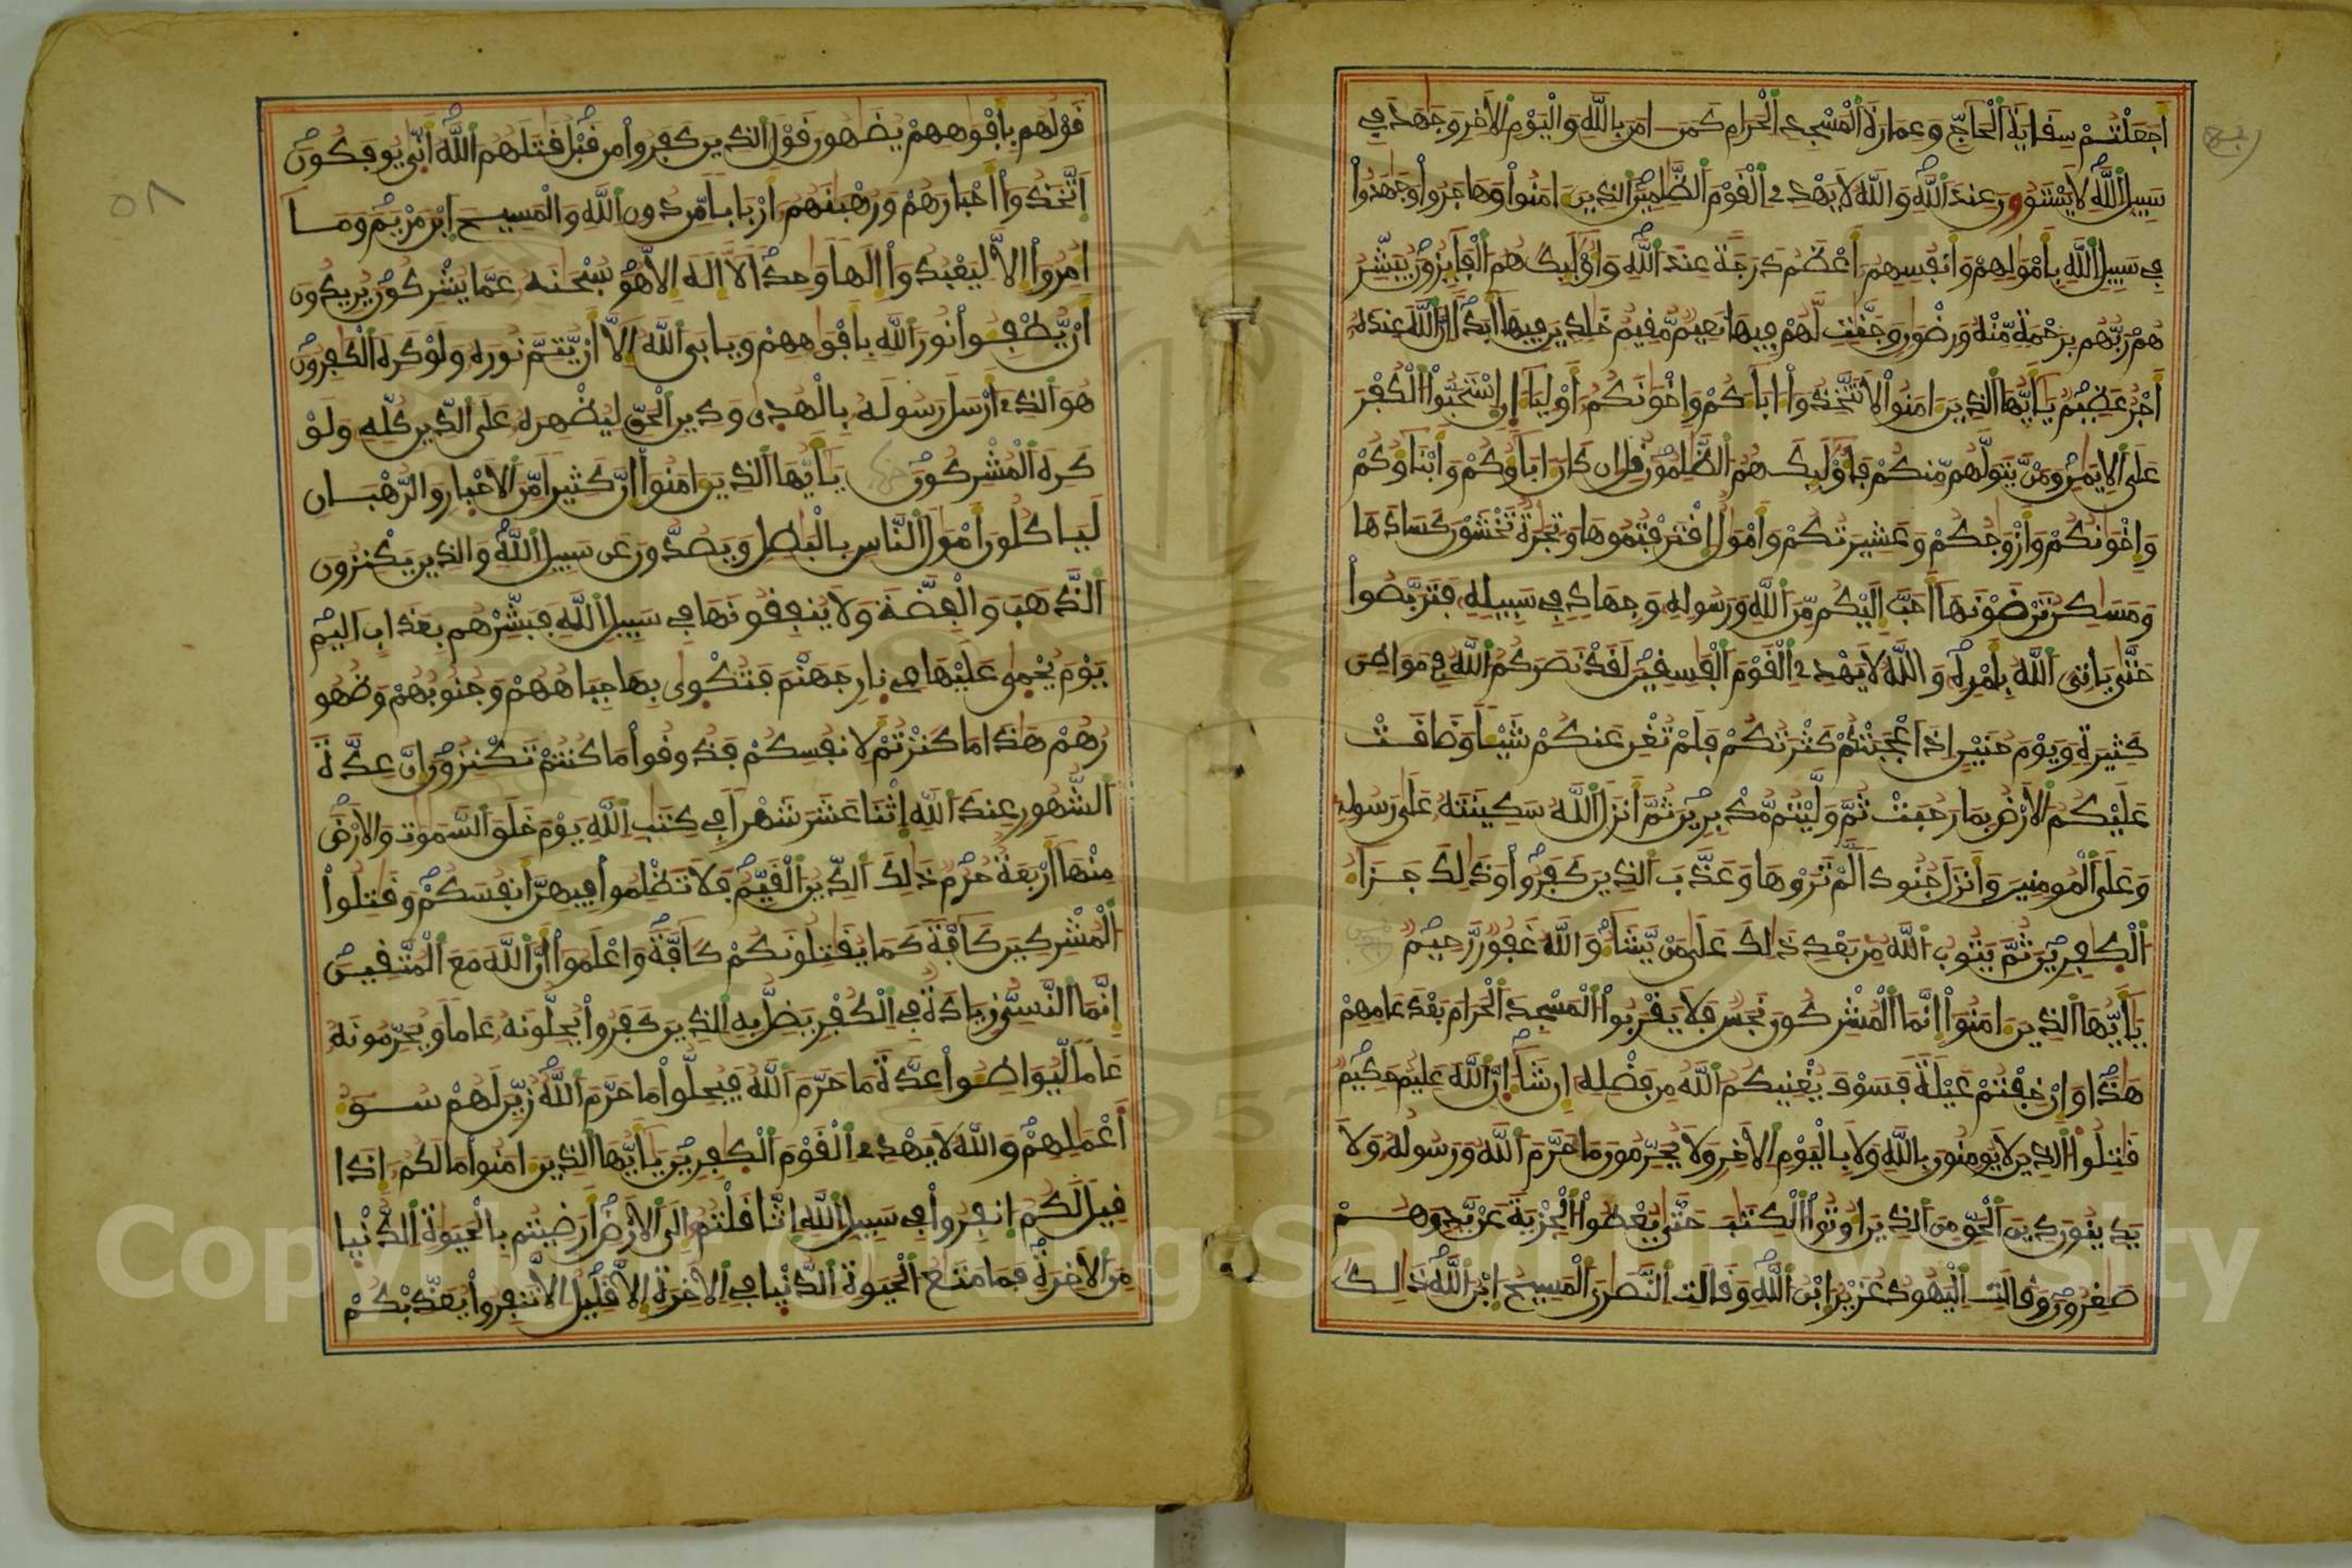 أجعلتم سقاية الحاج وعمارة المسجد الحرام كمن امن بالله واليوم الاخر وجهد في
سبيل الله لا يستوون عند الله والله لا يهدي القوم الظلمين الذين امنوا وهاجروا وجهدوا
في سبيل الله بأمولهم وأنفسهم أعظم درجة عند الله وأولئك هم الفايزون يبشر
هم ربهم برحمة منه ورضون وجنت لهم فيها نعيم مقيم خلدين فيها أبدا ان الله عنده
أجر عظيم يأيها الذين امنوا لا تتخذوا اباكم وإخونكم أوليا ان استحبوا الكفر
على الايمن ومن يتولهم منكم فأولئك هم الظلمون قل ان كان اباؤكم وأبناؤكم
وإخونكم وأزوجكم وعشيرتكم وأمول اقترفتموها وتجرة تخشون كسادها
ومسكن ترضونها أحب إليكم من الله ورسوله وجهاد في سبيله فتربصوا
حتى يأتي الله بأمره والله لا يهدي القوم الفسقين لقد نصركم الله في مواطن
كثيرة ويوم حنين اذ أعجبتكم كثرتكم فلم تغن عنكم شيئا وضاقت
عليكم الارض بما رحبت ثم وليتم مدبرين ثم أنزل الله سكينته على رسوله
وعلى المومنين وأنزل جنودا لم تروها وعذب الذين كفروا وذلك جزاء
الكفرين ثم يتوب الله من بعد ذلك على من يشاء والله غفور رحيم
يأيها الذين امنوا إنما المشركون نجس فلا يقربوا المسجد الحرام بعد عامهم
هذا وان خفتم عيلة فسوف يغنيكم الله من فضله إن شاء ان الله عليم حكيم
قتلوا الذين لا يومنون بالله ولا باليوم الاخر ولا يحرمون ما حرم الله ورسوله ولا
يدينون دين الحق من الذين اوتوا الكتب حتى يعطوا الجزية عن يد وهم
صغرون وقالت اليهود عزير ابن الله وقالت النصرى المسيح ابن الله ذلك
٥٨
قولهم بأفوههم يضهون قول الذين كفروا من قبل قتلهم الله أنى يوفكون
اتخذوا أحبارهم ورهبنهم أربابا من دون الله والمسيح ابن مريم وما
امروا إلا ليعبدوا إلها وحدا لا اله الا هو سبحنه عما يشركون يريدون
أن يطفئوا نور الله بأفوههم ويابى الله إلا أن يتم نوره ولو كره الكفرون
هو الذي أرسل رسوله بالهدى ودين الحق ليظهره على الدين كله ولو
كره المشركون يأيها الذين امنوا ان كثيرا من الاحبار والرهبان
لياكلون أمول الناس بالبطل ويصدون عن سبيل الله والذين يكنزون
الذهب والفضة ولا ينفقونها في سبيل الله فبشرهم بعذاب اليم
يوم يحمى عليها في نار جهنم فتكوى بها جباههم وجنوبهم وظهو
رهم هذا ما كنزتم لانفسكم فذوقوا ما كنتم تكنزون ان عدة
الشهور عند الله إثنا عشر شهرا في كتب الله يوم خلق السموت والارض
منها أربعة حرم ذلك الدين القيم فلا تظلموا فيهن أنفسكم وقتلوا
المشركين كافة كما يقتلونكم كافة واعلموا أن الله مع المتقين
إنما النسي زيادة في الكفر يضل به الذين كفروا يحلونه عاما ويحرمونه
عاما ليواطئوا عدة ما حرم الله فيحلوا ما حرم الله زين لهم سوء
أعملهم والله لا يهدي القوم الكفرين يأيها الذين امنوا ما لكم إذا
قيل لكم انفروا في سبيل الله اثاقلتم الى الارض أرضيتم بالحيوة الدنيا
من الاخرة فما متع الحيوة الدنيا في الاخرة إلا قليل الا تنفروا يعذبكم
Copyright © King Saud University